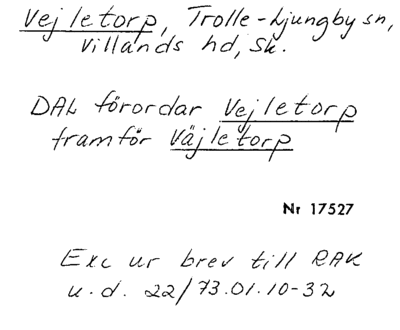 Vejletorp, Trolle-Ljungby sn,
Villands hd, Sk.
DAL förordar Vejletorp
framför Väjletorp
Nr 17527
Exc ur brev till RAK
u.d. 22/73.01.10-32